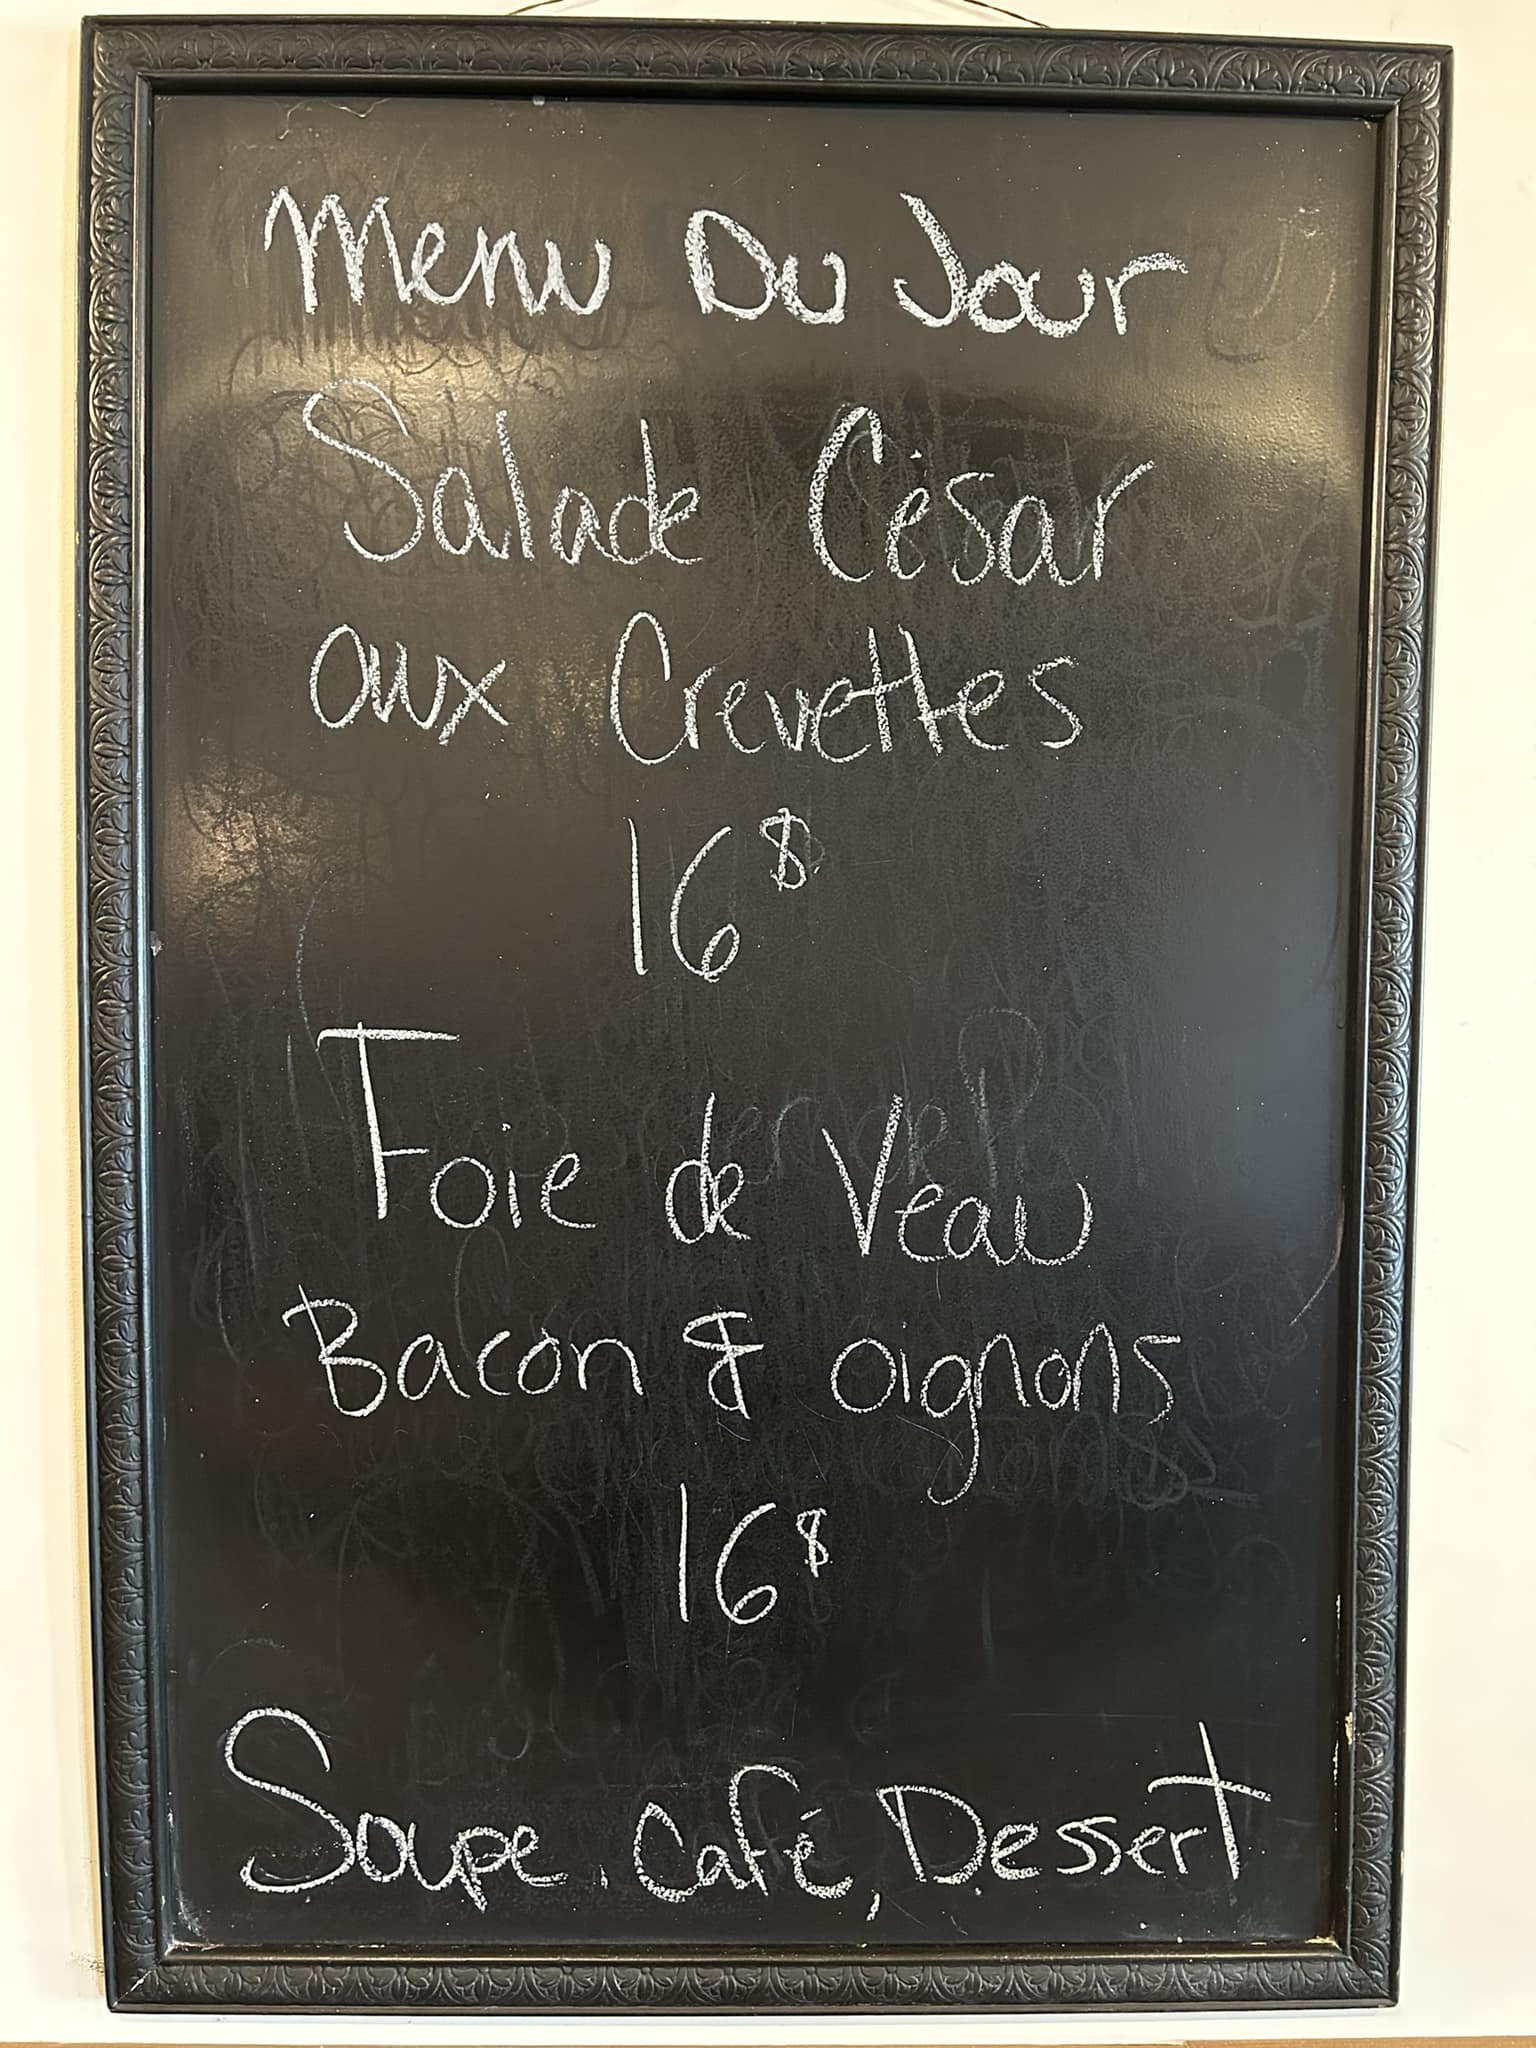 Menu Du Jour
Salade César
aux Crevettes
16$
Foie de Veau
Bacon & oignons
16$
Soupe, Café, Dessert